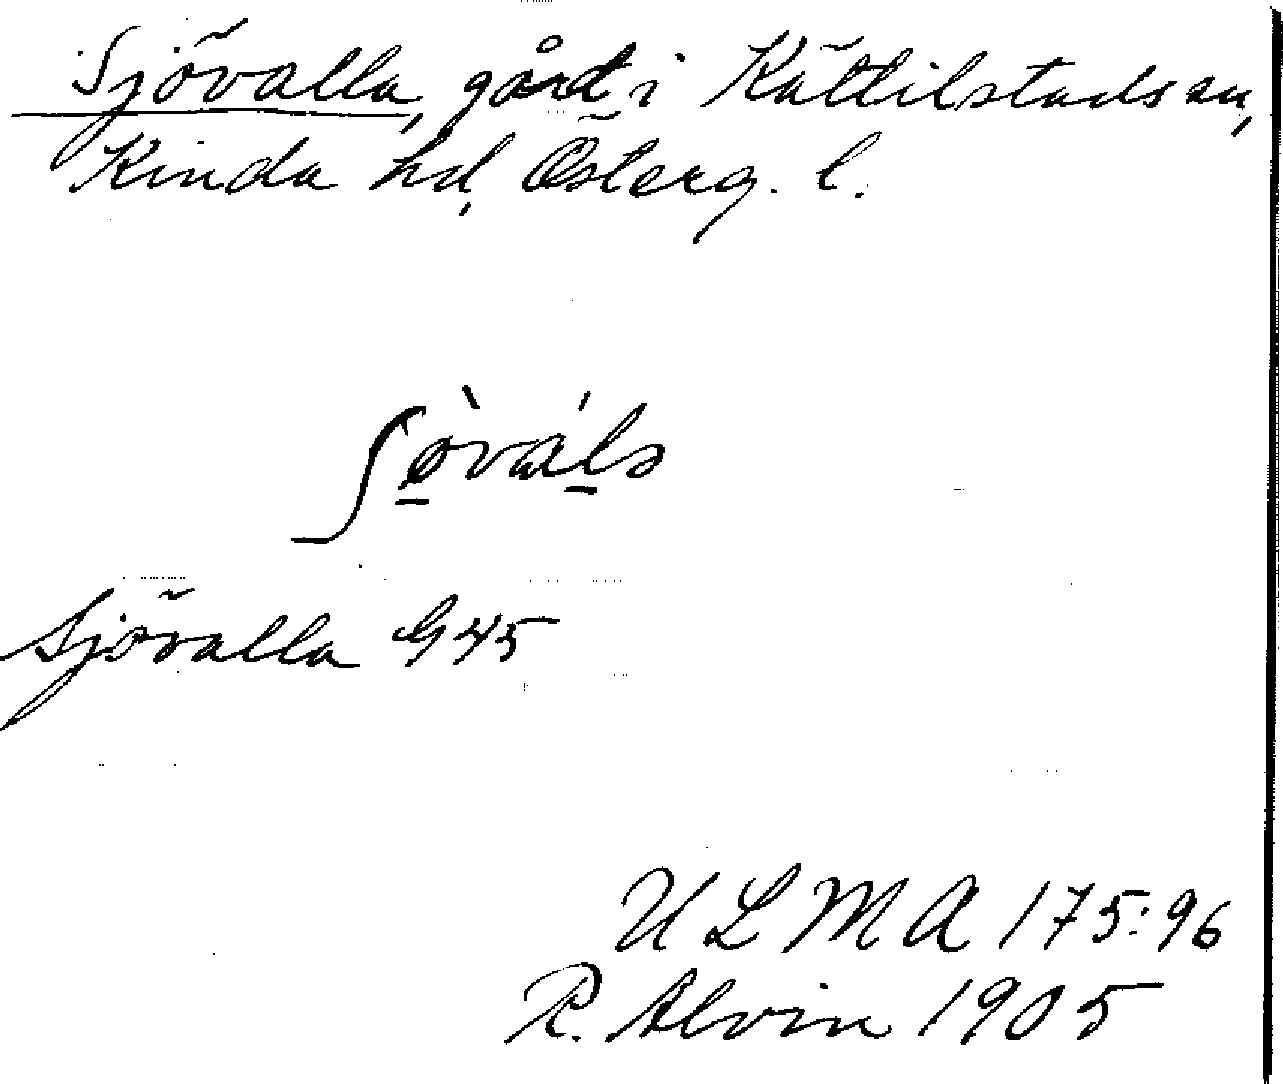 Sjövalla, gård i Kättilstads sn,
Kinda hd, Österg. l.
ʃø̱̀váḻə
Sjövalla G45
ULMA 175:96
R. Alvin 1905